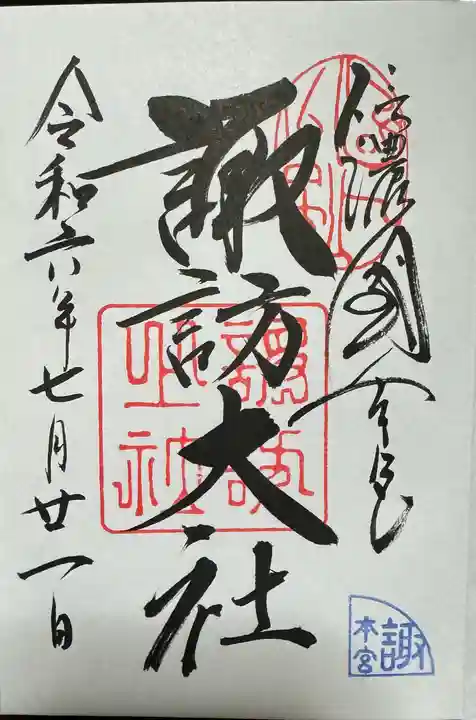 信濃國
諏訪大社
令和六年七月廿一日
諏訪
之社
諏
本宮